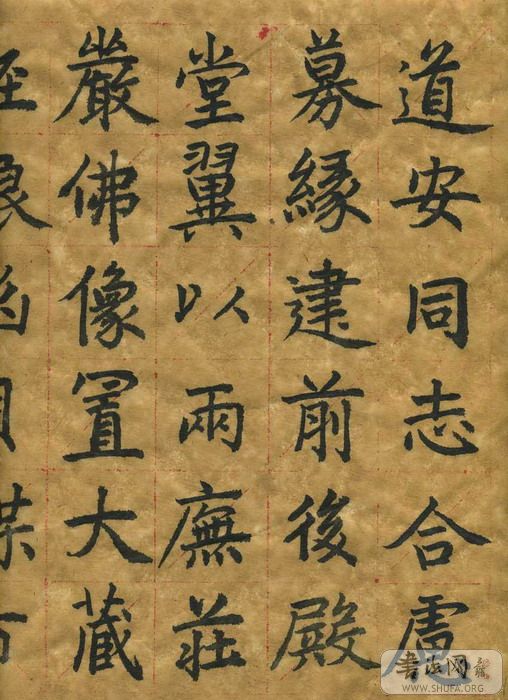 道安同志合慮
募緣建前後殿
堂翼以兩廡莊
嚴佛像置大藏
書法网
WWW.SHUFA.ORG